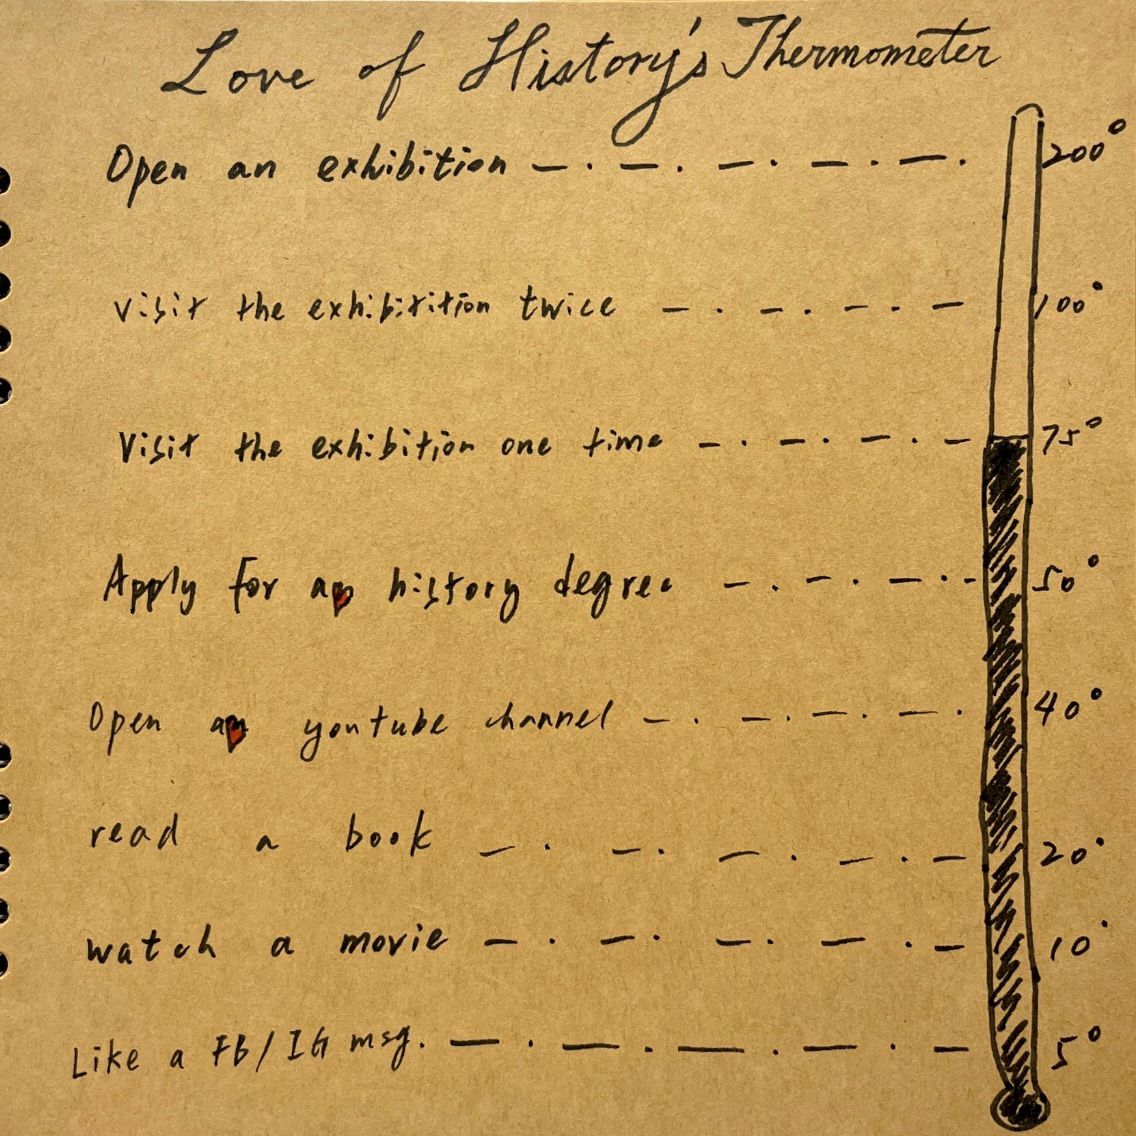 Love of History's Thermometer
Open an exhibition 200°
visit the exhibitition twice 100°
Visit the exhibition one time 75°
Apply for a history degree 50°
Open a youtube channel 40°
read a book 20°
watch a movie 10°
Like a FB/IG msg. 5°